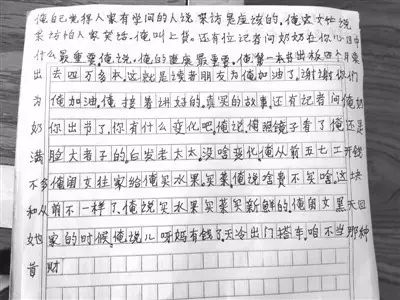 俺自己觉得人家有学问的人说采访是应该的。俺这文化说
采访怕人家笑话。俺叫上货。还有位记者问奶奶在你心目中
什么最重要。俺说，俺的健康最重要。俺第一本书出版四个月卖
出去四万多本。这就是读者朋友为俺加油了。谢谢你们
为俺加油。俺接着讲好的。真实的故事。还有记者问俺奶
奶你出节了。你有什么变化吧。俺说俺照镜子看了俺还是
满脸大者子的白发老太太。没啥变化。俺从前五七工开钱
不多俺闺女往家给俺买水果。买菜。俺说啥费不买啥。这块
和从前不一样了。俺说买水果买菜买新鲜的。俺闺女黑天回
她家的时候。俺说儿呀妈有钱了。天冷出门搭车。咱不当那种
首财